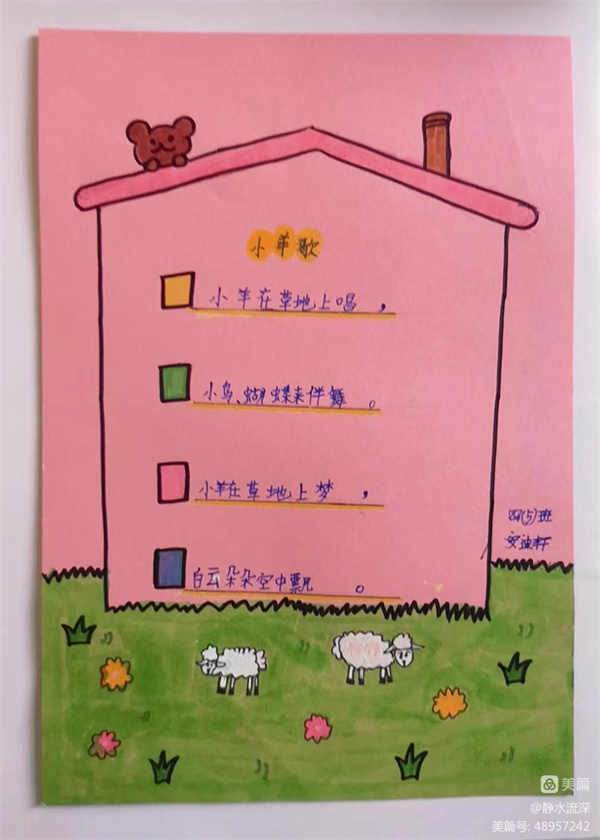 小羊歌
小羊在草地上唱，
小鸟、蝴蝶来伴舞。
小羊在草地上梦，
白云朵朵空中飘。
四(5)班
安迪轩
美篇
@静水流深
美篇号: 48957242